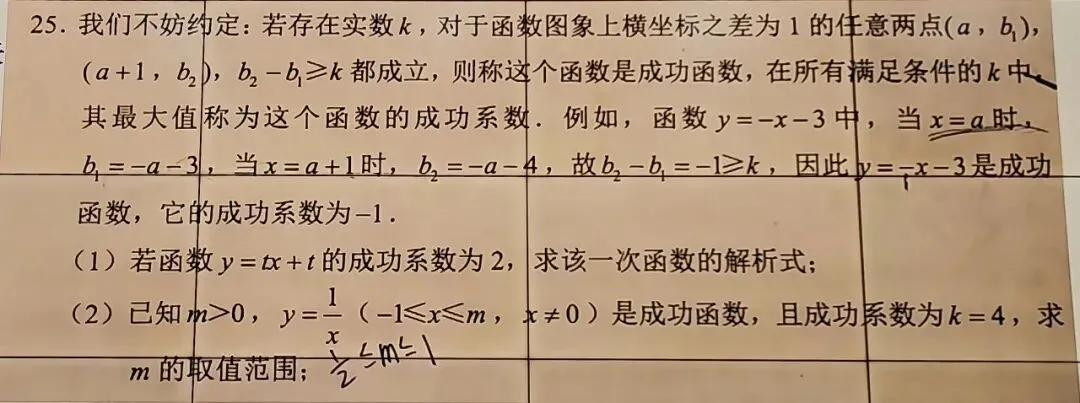 25. 我们不妨约定：若存在实数k，对于函数图象上横坐标之差为1的任意两点(a，b₁)，
(a+1，b₂)，b₂-b₁≥k都成立，则称这个函数是成功函数，在所有满足条件的k中，
其最大值称为这个函数的成功系数．例如，函数y=-x-3中，当x=a时，
b₁=-a-3，当x=a+1时，b₂=-a-4，故b₂-b₁=-1≥k，因此y=-x-3是成功
函数，它的成功系数为-1．
（1）若函数y=tx+t的成功系数为2，求该一次函数的解析式；
（2）已知m>0，y=1/x（-1≤x≤m，x≠0）是成功函数，且成功系数为k=4，求
m的取值范围；1/2≤m≤1